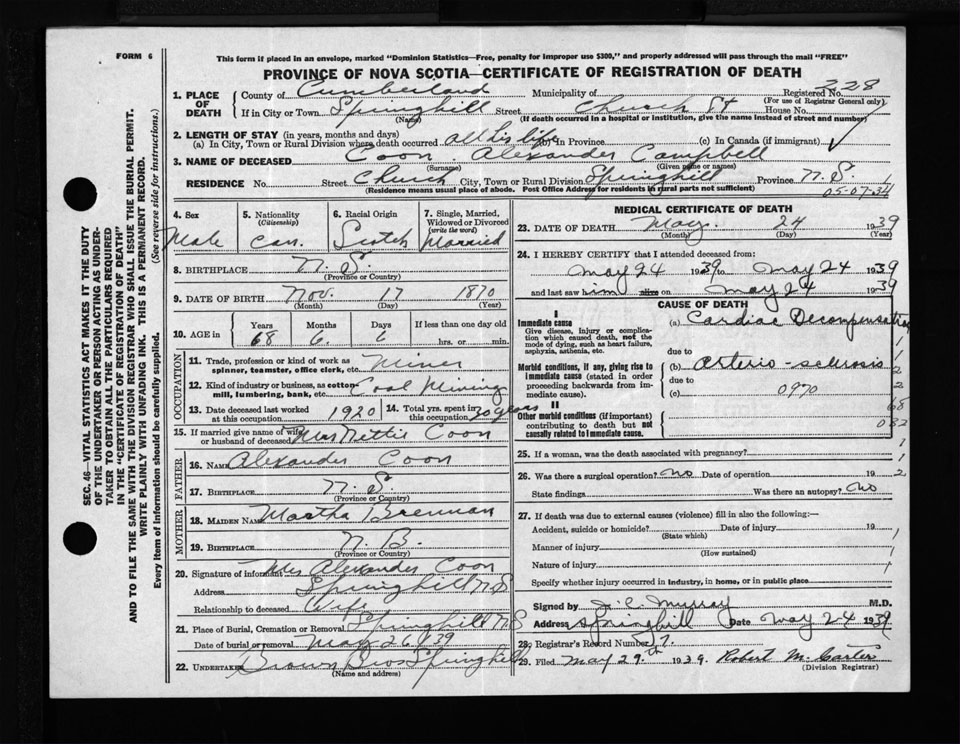 FORM 6
This form if placed in an envelope, marked "Dominion Statistics—Free, penalty for improper use $300," and properly addressed will pass through the mail "FREE"
PROVINCE OF NOVA SCOTIA—CERTIFICATE OF REGISTRATION OF DEATH
SEC. 46—VITAL STATISTICS ACT MAKES IT THE DUTY
OF THE UNDERTAKER OR PERSON ACTING AS UNDER-
TAKER TO OBTAIN ALL THE PARTICULARS REQUIRED
IN THE "CERTIFICATE OF REGISTRATION OF DEATH"
AND TO FILE THE SAME WITH THE DIVISION REGISTRAR WHO SHALL ISSUE THE BURIAL PERMIT.
WRITE PLAINLY WITH UNFADING INK. THIS IS A PERMANENT RECORD.
Every item of Information should be carefully supplied. (See reverse side for instructions.)
1. PLACE OF DEATH
County of Cumberland Municipality of Registered No. 228
(For use of Registrar General only)
If in City or Town Springhill Street Church St House No.
(Name) (If death occurred in a hospital or institution, give the name instead of street and number)
2. LENGTH OF STAY (in years, months and days)
(a) In City, Town or Rural Division where death occurred all his life (b) In Province (c) In Canada (if immigrant)
3. NAME OF DECEASED Coon, Alexander Campbell
(Surname) (Given name or names)
RESIDENCE No. Street Church City, Town or Rural Division Springhill Province N. S.
(Residence means usual place of abode. Post Office Address for residents in rural parts not sufficient) 05-07-34
4. Sex Male
5. Nationality (Citizenship) Can.
6. Racial Origin Scotch
7. Single, Married, Widowed or Divorced (write the word) Married
8. BIRTHPLACE N. S.
(Province or Country)
9. DATE OF BIRTH Nov. 17 1870
(Month) (Day) (Year)
10. AGE in Years Months Days If less than one day old
68 6 6 hrs. or min.
OCCUPATION
11. Trade, profession or kind of work as spinner, teamster, office clerk, etc. Miner
12. Kind of industry or business, as cotton-mill, lumbering, bank, etc. Coal Mining
13. Date deceased last worked at this occupation 1920
14. Total yrs. spent in this occupation 30 years
15. If married give name of wife or husband of deceased Mrs Nettie Coon
FATHER
16. NAME Alexander Coon
17. BIRTHPLACE N. S.
(Province or Country)
MOTHER
18. MAIDEN NAME Martha Brennan
19. BIRTHPLACE N. B.
(Province or Country)
20. Signature of informant Mrs Alexander Coon
Address Springhill N S
Relationship to deceased Wife
21. Place of Burial, Cremation or Removal Springhill N.S
Date of burial or removal May 26 1939
22. UNDERTAKER Brown Bros Springhill
(Name and address)
MEDICAL CERTIFICATE OF DEATH
23. DATE OF DEATH May. 24 1939
(Month) (Day) (Year)
24. I HEREBY CERTIFY that I attended deceased from:
May 24 1939 to May 24 1939
and last saw him alive on May 24 1939
CAUSE OF DEATH
I
Immediate cause (a) Cardiac Decompensation
Give disease, injury or complication which caused death, not the mode of dying, such as heart failure, asphyxia, asthenia, etc.
due to
Morbid conditions, if any, giving rise to immediate cause (stated in order proceeding backwards from immediate cause).
(b) Arterio-sclerosis
due to
(c) 0970
II
Other morbid conditions (if important) contributing to death but not causally related to immediate cause.
25. If a woman, was the death associated with pregnancy?
26. Was there a surgical operation? no Date of operation 19
State findings Was there an autopsy? no
27. If death was due to external causes (violence) fill in also the following:—
Accident, suicide or homicide? Date of injury 19
(State which)
Manner of injury
(How sustained)
Nature of injury
Specify whether injury occurred in industry, in home, or in public place
Signed by J. C. Murray M.D.
Address Springhill Date May 24 1939
28. Registrar's Record Number 7.
29. Filed May 29th 1939. Robert M. Carters
(Division Registrar)